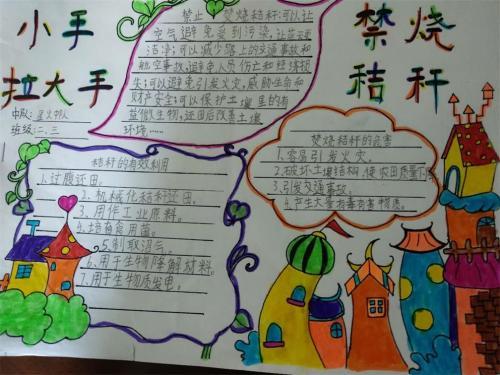 小手
拉大手
禁烧
秸秆
中队:星火中队
班级:二、三
禁止 焚烧秸秆:可以让
空气避免受到污染,让蓝天更
洁净;可以减少路上的交通事故和
航空事故,避免人员伤亡和经济损
失;可以避免引发火灾,威胁生命和
财产安全;可以保护土壤里的有
益微生物,还田后改善土壤
环境……
秸秆的有效利用
1.过腹还田。
2.机械化秸秆还田。
3.用作工业原料。
4.培育食用菌。
5.制取沼气。
6.用于生物降解材料。
7.用于生物质发电。
焚烧秸秆的危害
1.容易引发火灾。
2.破坏土壤结构,使农田质量下降
3.引发交通事故。
4.产生大量有毒有害物质。